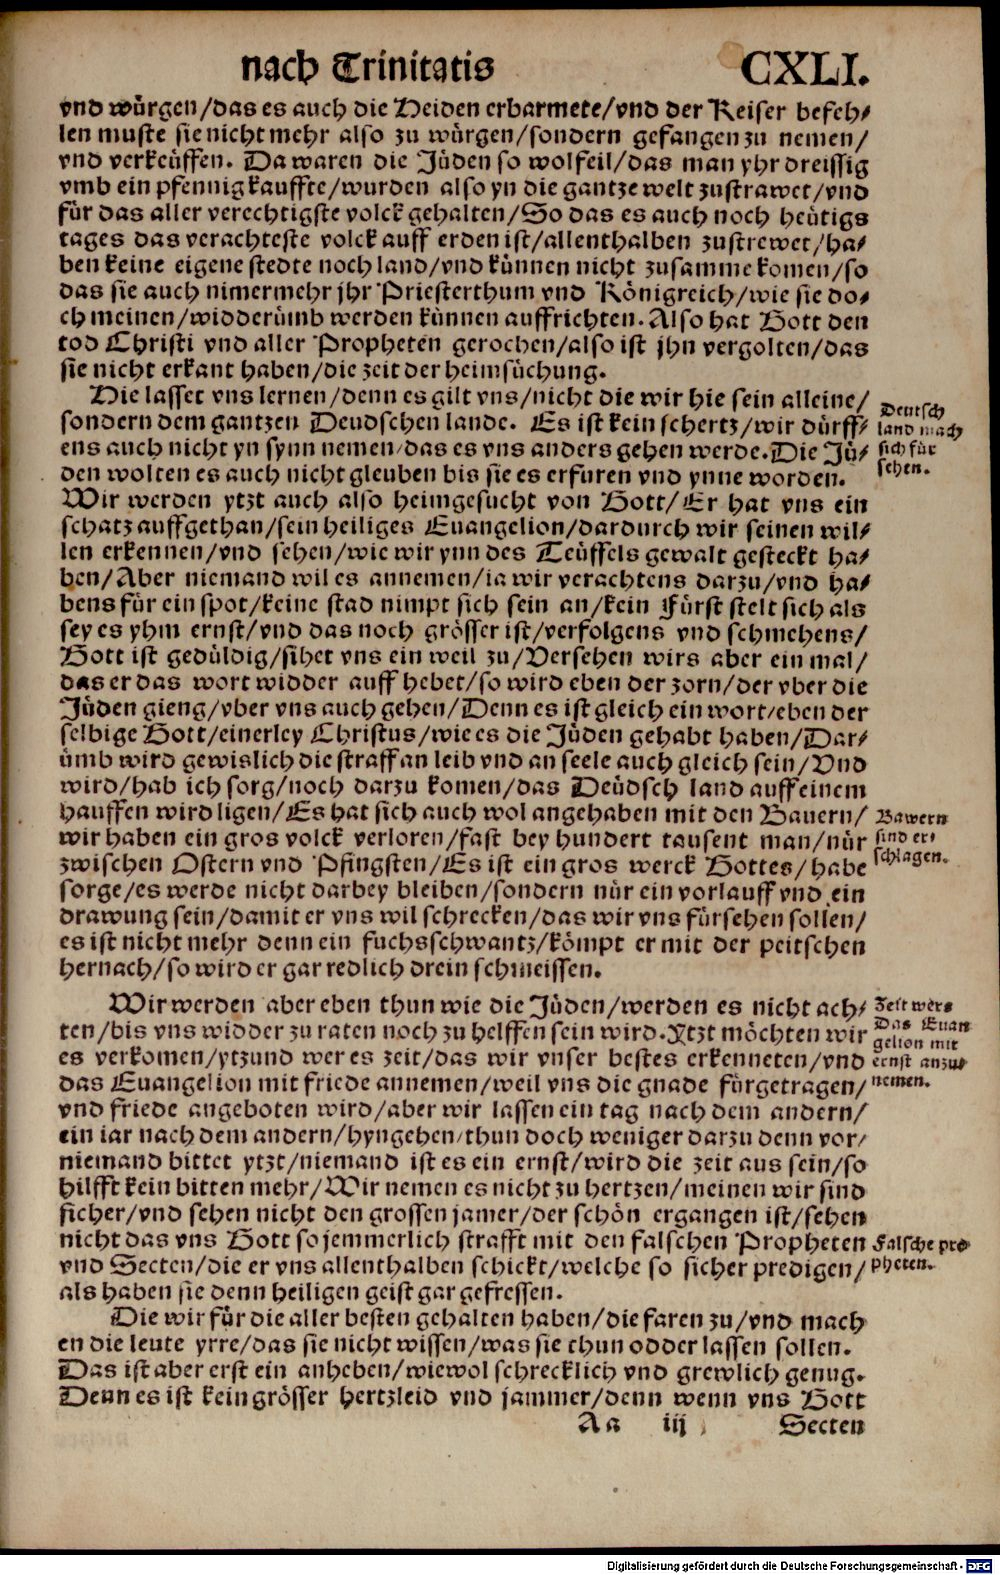 nach Trinitatis CXLI.
vnd würgen/das es auch die Heiden erbarmete/vnd der Keiser befeh-
len muste sie nicht mehr also zu würgen/sondern gefangen zu nemen/
vnd verkeüffen. Da waren die Jüden so wolfeil/das man yhr dreissig
vmb ein pfennig kauffte/wurden also yn die gantze welt zustrawet/vnd
für das aller verechtigste volck gehalten/So das es auch noch heütigs
tages das verachteste volck auff erden ist/allenthalben zustrewet/ha-
ben keine eigene stedte noch land/vnd künnen nicht zusamme komen/so
das sie auch nimermehr jhr Priesterthum vnd Königreich/wie sie do-
ch meinen/widderümb werden künnen auffrichten. Also hat Gott den
tod Christi vnd aller Propheten gerochen/also ist jhn vergolten/das
sie nicht erkant haben/die zeit der heimsüchung.
Hie lasset vns lernen/denn es gilt vns/nicht die wir hie sein alleine/
sondern dem gantzen Deudschen lande. Es ist kein schertz/wir dürff-
ens auch nicht yn synn nemen/das es vns anders gehen werde. Die Jü-
den wolten es auch nicht gleuben bis sie es erfuren vnd ynne worden.
Wir werden ytzt auch also heimgesucht von Gott/Er hat vns ein
schatz auffgethan/sein heiliges Euangelion/dardurch wir seinen wil-
len erkennen/vnd sehen/wie wir ynn des Teüffels gewalt gesteckt ha-
ben/Aber niemand wil es annemen/ia wir verachtens darzu/vnd ha-
bens für ein spot/keine stad nimpt sich sein an/kein Fürst stelt sich als
sey es yhm ernst/vnd das noch grösser ist/verfolgens vnd schmehens/
Gott ist gedüldig/sihet vns ein weil zu/Versehen wirs aber ein mal/
das er das wort widder auff hebet/so wird eben der zorn/der vber die
Jüden gieng/vber vns auch gehen/Denn es ist gleich ein wort/eben der
selbige Gott/einerley Christus/wie es die Jüden gehabt haben/Dar-
ümb wird gewislich die straff an leib vnd an seele auch gleich sein/Vnd
wird/hab ich sorg/noch darzu komen/das Deüdsch land auff einem
hauffen wird ligen/Es hat sich auch wol angehaben mit den Bauern/
wir haben ein gros volck verloren/fast bey hundert tausent man/nür
zwischen Ostern vnd Pfingsten/Es ist ein gros werck Gottes/habe
sorge/es werde nicht darbey bleiben/sondern nür ein vorlauff vnd ein
drawung sein/damit er vns wil schrecken/das wir vns fürsehen sollen/
es ist nicht mehr denn ein fuchsschwantz/kömpt er mit der peitschen
hernach/so wird er gar redlich drein schmeissen.
Wir werden aber eben thun wie die Jüden/werden es nicht ach-
ten/bis vns widder zu raten noch zu helffen sein wird. Ytzt möchten wir
es verkomen/ytzund wer es zeit/das wir vnser bestes erkenneten/vnd
das Euangelion mit friede annemen/weil vns die gnade fürgetragen/
vnd friede angeboten wird/aber wir lassen ein tag nach dem andern/
ein iar nach dem andern/hyngehen/thun doch weniger darzu denn vor/
niemand bittet ytzt/niemand ist es ein ernst/wird die zeit aus sein/so
hilfft kein bitten mehr/Wir nemen es nicht zu hertzen/meinen wir sind
sicher/vnd sehen nicht den grossen jamer/der schön ergangen ist/sehen
nicht das vns Gott so jemmerlich strafft mit den falschen Propheten
vnd Secten/die er vns allenthalben schickt/welche so sicher predigen/
als haben sie denn heiligen geist gar gefressen.
Die wir für die aller besten gehalten haben/die faren zu/vnd mach
en die leute yrre/das sie nicht wissen/was sie thun odder lassen sollen.
Das ist aber erst ein anheben/wiewol schrecklich vnd grewlich genug.
Denn es ist kein grösser hertzleid vnd jammer/denn wenn vns Gott
Aa iij Secten
Deutsch
land mach
sich für
sehen.
Bawern
sind er-
schlagen.
Zeit wers
Das Euan
gelion mit
ernst anzu-
nemen.
Falsche pro
pheten.
Digitalisierung gefördert durch die Deutsche Forschungsgemeinschaft - DFG